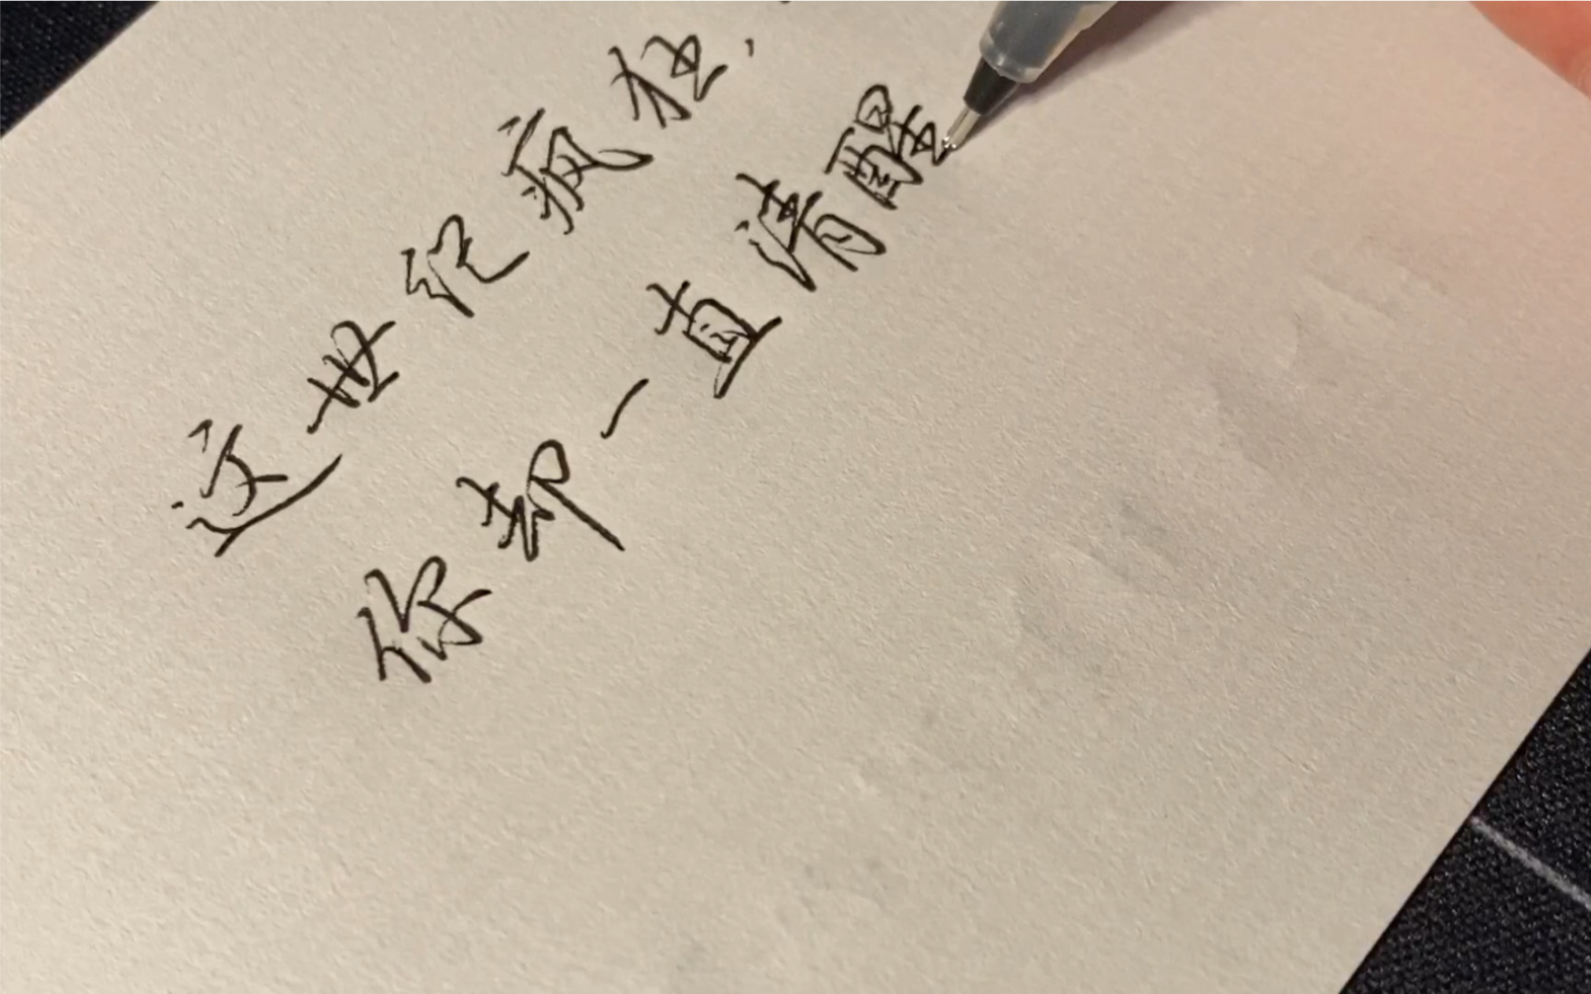 这世纪疯狂,
你都一直清醒